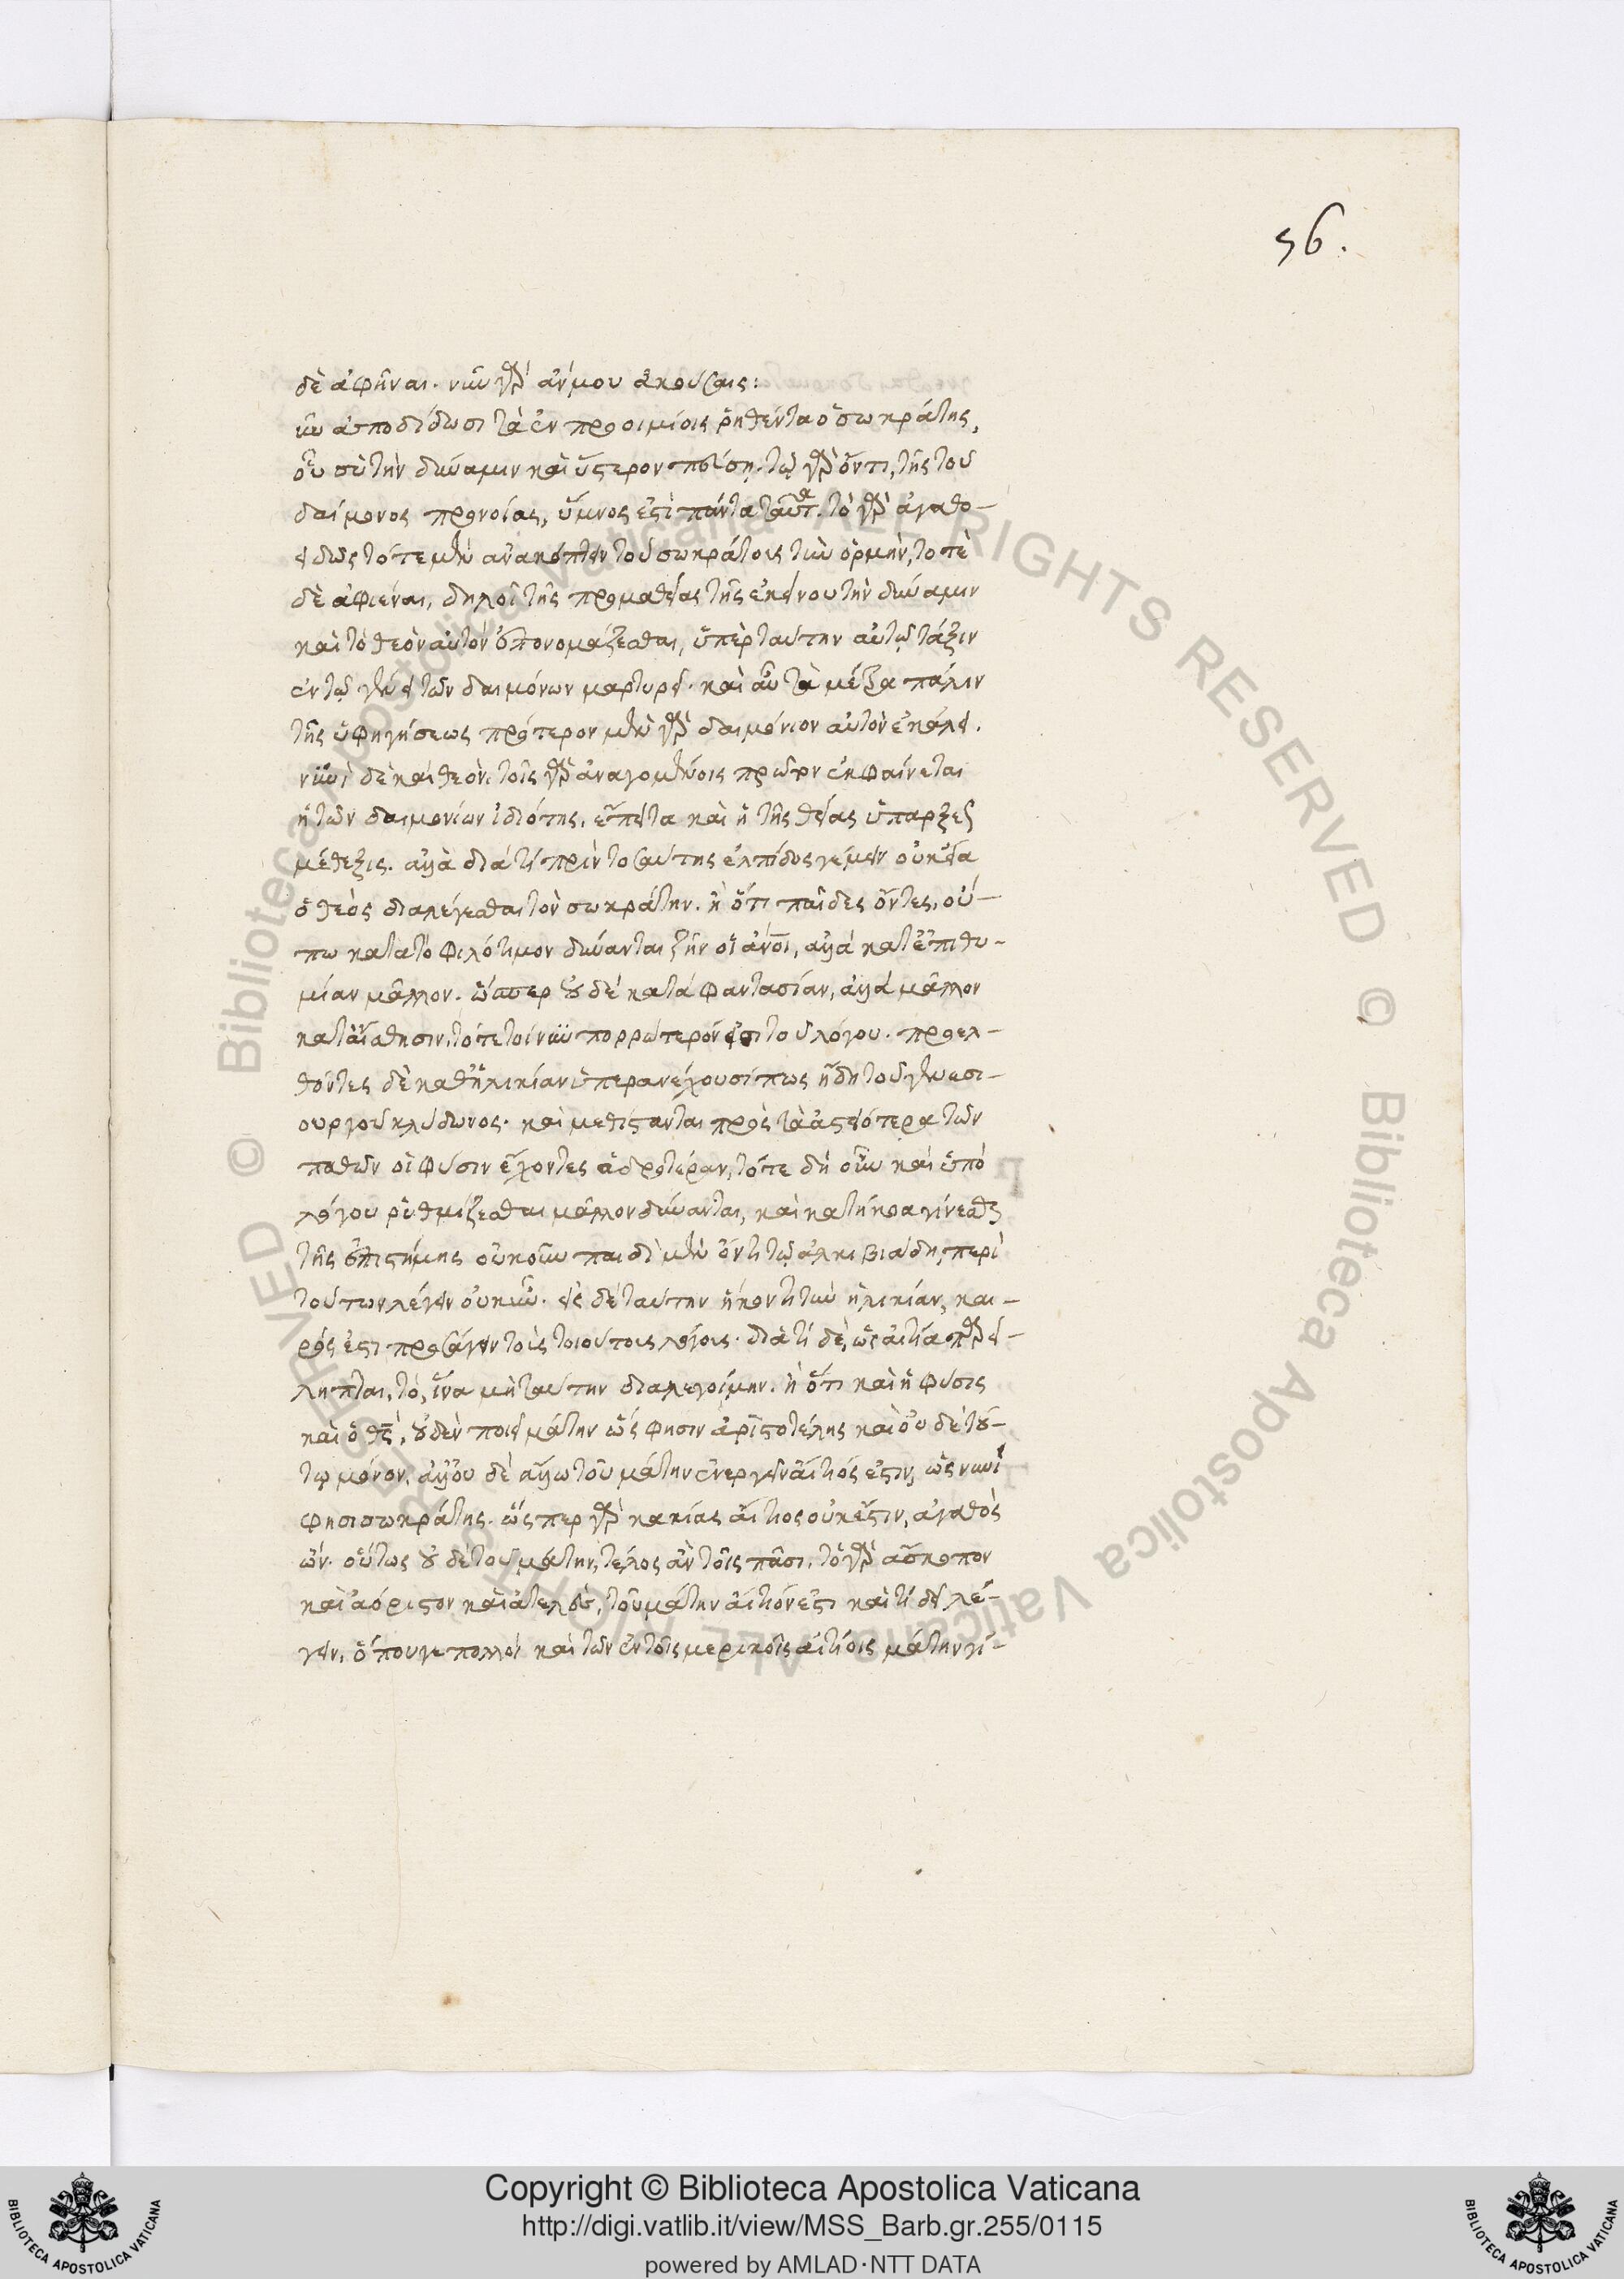 56.
δὲ ἀφῆναι. νῦν γὰρ ἄν μου ἀκούσαις:
νῦν ἀποδίδωσι τὰ ἐν προοιμίοις ῥηθέντα ὁ σωκράτης,
οὗ σὺ τὴν δύναμιν καὶ ὕστερον πεύσῃ. τῷ γὰρ ὄντι, τῆς τοῦ
δαίμονος προνοίας, ὕμνος ἐστὶ πάντα ταῦτα. τὸ γὰρ ἀγαθο-
ειδῶς τότε μὲν ἀνακόπτειν τοῦ σωκράτους τὴν ὁρμὴν, τοτὲ
δὲ ἀφιέναι, δηλοῖ τῆς προμαθείας τῆς ἐκείνου τὴν δύναμιν
καὶ τὸ θεὸν αὐτὸν ἐπονομάζεσθαι, ὑπὲρ ταύτην αὐτῷ τάξιν
ἐν τῷ γένει τῶν δαιμόνων μαρτυρεῖ. καὶ αὖ τὰ μέτρα πάλιν
τῆς ὑφηγήσεως πρότερον μὲν γὰρ δαιμόνιον αὐτὸν ἐκάλει.
νυνὶ δὲ καὶ θεὸν. τοῖς γὰρ ἀναγομένοις πρῶτον ἐκφαίνεται
ἡ τῶν δαιμονίων ἰδιότης, ἔπειτα καὶ ἡ τῆς θείας ὑπάρξεως
μέθεξις. ἀλλὰ διὰ τί πρὶν τοσαύτης ἐλπίδος γέμειν οὐκ εἴα
ὁ θεὸς διαλέγεσθαι τὸν σωκράτην. ἢ ὅτι παῖδες ὄντες, οὔ-
πω κατὰ τὸ φιλότιμον δύνανται ζῆν οἱ ἄνοι, ἀλλὰ κατ' ἐπιθυ-
μίαν μᾶλλον. ὥσπερ οὐδὲ κατὰ φαντασίαν, ἀλλὰ μᾶλλον
κατ' αἴσθησιν, τότε τοίνυν πορρώτερόν εἰσι τοῦ λόγου. προελ-
θόντες δὲ καθ' ἡλικίαν ὑπερανέχουσί πως ἤδη τοῦ γενεσι-
ουργοῦ κλύδωνος. καὶ μεθίστανται πρὸς τὰ ἀστειότερα τῶν
παθῶν οἱ φύσιν ἔχοντες ἁδροτέραν, τότε δὴ οὖν καὶ ὑπὸ
λόγου ῥυθμίζεσθαι μᾶλλον δύνανται, καὶ κατήκοα γίνεσθαι
τῆς ἐπιστήμης οὐκοῦν παιδὶ μὲν ὄντι τῷ ἀλκιβιάδῃ περὶ
τούτων λέγειν οὐκ ἦν. εἰς δὲ ταύτην ἥκοντι τὴν ἡλικίαν, και-
ρός ἐστι προσάγειν τοῖς τοιούτοις λόγοις. διὰ τί δὲ, ὡς αἰτία παρεί-
ληπται, τό, ἵνα μὴ μάτην διαλεγοίμην. ἢ ὅτι καὶ ἡ φύσις
καὶ ὁ θς, οὐδὲν ποιεῖ μάτην ὥς φησιν ἀριστοτέλης καὶ οὐδὲ τού-
τῳ μόνον, ἀλλ' οὐδὲ ἄλλῳ τοῦ μάτην ἐνεργεῖν αἴτιός ἐστιν, ὡς νυνί
φησι σωκράτης. ὥσπερ γὰρ κακίας αἴτιος οὐκ ἔστιν, ἀγαθὸς
ὤν. οὕτως οὐδὲ τοῦ μάτην, τέλος ἂν τοῖς πᾶσι. τὸ γὰρ ἄσκοπον
καὶ ἀόριστον καὶ ἀτελὲς, τοῦ μάτην αἴτιόν ἐστι καὶ τί δεῖ λέ-
γειν, ὅπου γε πολλοὶ καὶ τῶν ἐν τοῖς μερικοῖς αἰτίοις μάτην γί-
Copyright © Biblioteca Apostolica Vaticana
http://digi.vatlib.it/view/MSS_Barb.gr.255/0115
powered by AMLAD·NTT DATA